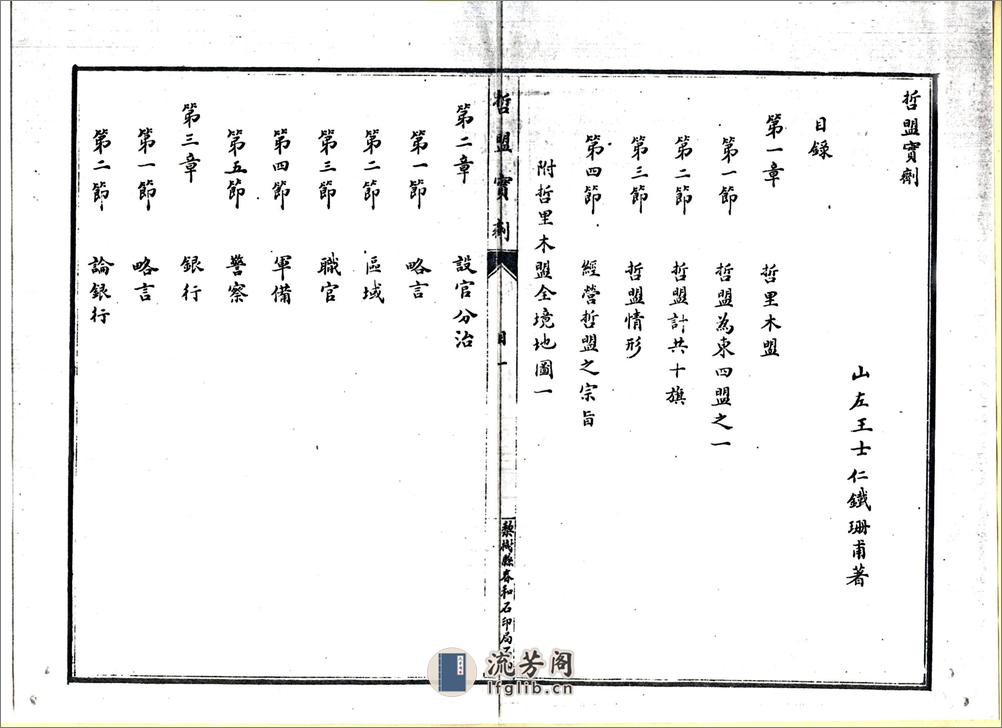 哲盟實劑
山左王士仁鐵珊甫著
目錄
第一章 哲里木盟
第一節 哲盟為東四盟之一
第二節 哲盟計共十旗
第三節 哲盟情形
第四節 經營哲盟之宗旨
附哲里木盟全境地圖一
哲盟實劑
目一
梨樹縣春和石印局
第二章 設官分治
第一節 略言
第二節 區域
第三節 職官
第四節 軍備
第五節 警察
第三章 銀行
第一節 略言
第二節 論銀行
流芳阁
lfglib.cn